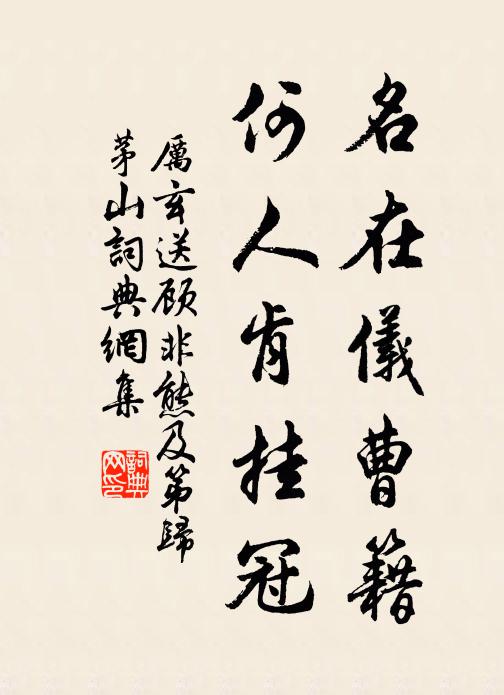 名在儀曹籍
何人肯挂冠
厲玄送顾非熊及第歸
茅山詞典網集
詞典
网印